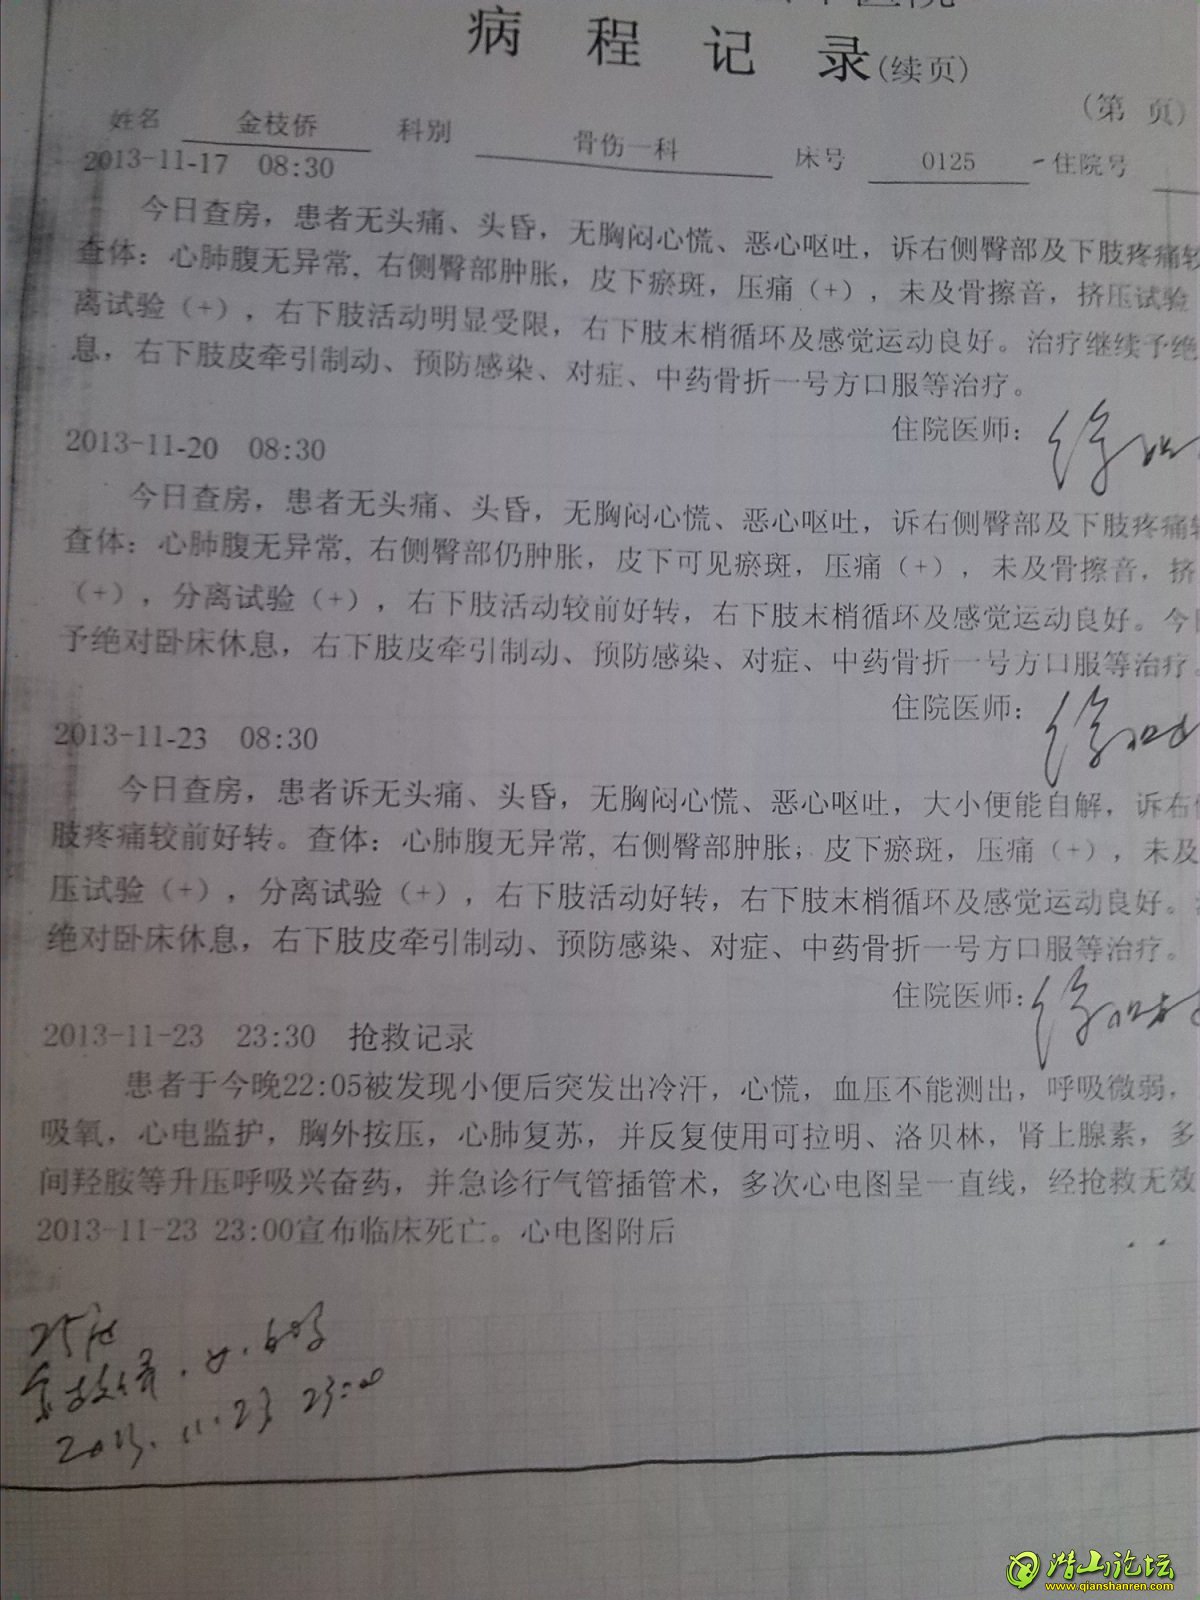 病 程 记 录(续页)
(第 页)
姓名 金枝侨 科别 骨伤一科 床号 0125 住院号
2013-11-17 08:30
今日查房，患者无头痛、头昏，无胸闷心慌、恶心呕吐，诉右侧臀部及下肢疼痛较
查体：心肺腹无异常，右侧臀部肿胀，皮下瘀斑，压痛（+），未及骨擦音，挤压试验
离试验（+），右下肢活动明显受限，右下肢末梢循环及感觉运动良好。治疗继续予绝
息，右下肢皮牵引制动、预防感染、对症、中药骨折一号方口服等治疗。
住院医师：
2013-11-20 08:30
今日查房，患者无头痛、头昏，无胸闷心慌、恶心呕吐，诉右侧臀部及下肢疼痛较
查体：心肺腹无异常，右侧臀部仍肿胀，皮下可见瘀斑，压痛（+），未及骨擦音，挤
（+），分离试验（+），右下肢活动较前好转，右下肢末梢循环及感觉运动良好。今日
予绝对卧床休息，右下肢皮牵引制动、预防感染、对症、中药骨折一号方口服等治疗。
住院医师：
2013-11-23 08:30
今日查房，患者诉无头痛、头昏，无胸闷心慌、恶心呕吐，大小便能自解，诉右侧
肢疼痛较前好转。查体：心肺腹无异常，右侧臀部肿胀；皮下瘀斑，压痛（+），未及
压试验（+），分离试验（+），右下肢活动好转，右下肢末梢循环及感觉运动良好。
绝对卧床休息，右下肢皮牵引制动、预防感染、对症、中药骨折一号方口服等治疗。
住院医师：
2013-11-23 23:30 抢救记录
患者于今晚22:05被发现小便后突发出冷汗，心慌，血压不能测出，呼吸微弱，
吸氧，心电监护，胸外按压，心肺复苏，并反复使用可拉明、洛贝林，肾上腺素，多
间羟胺等升压呼吸兴奋药，并急诊行气管插管术，多次心电图呈一直线，经抢救无效
2013-11-23 23:00宣布临床死亡。心电图附后
25床
金枝侨．女．60岁
2013．11．23 23:00
潜山论坛
www.qianshanren.com